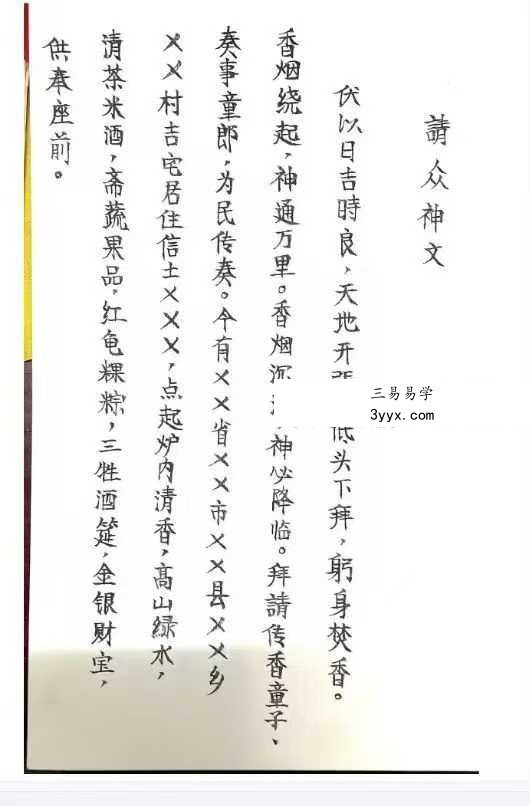 請众神文
伏以日吉時良，天地开 低头下拜，躬身焚香。
香烟绕起，神通万里。香烟沉 神必降临。拜請传香童子、
奏事童郎，为民传奏。今有××省××市××县××乡
××村吉宅居住信士×××，点起炉内清香，高山緑水，
清茶米酒，斋蔬果品，红龟粿粽，三牲酒筵，金银财宝，
供奉座前。
三易易学
3yyx.com